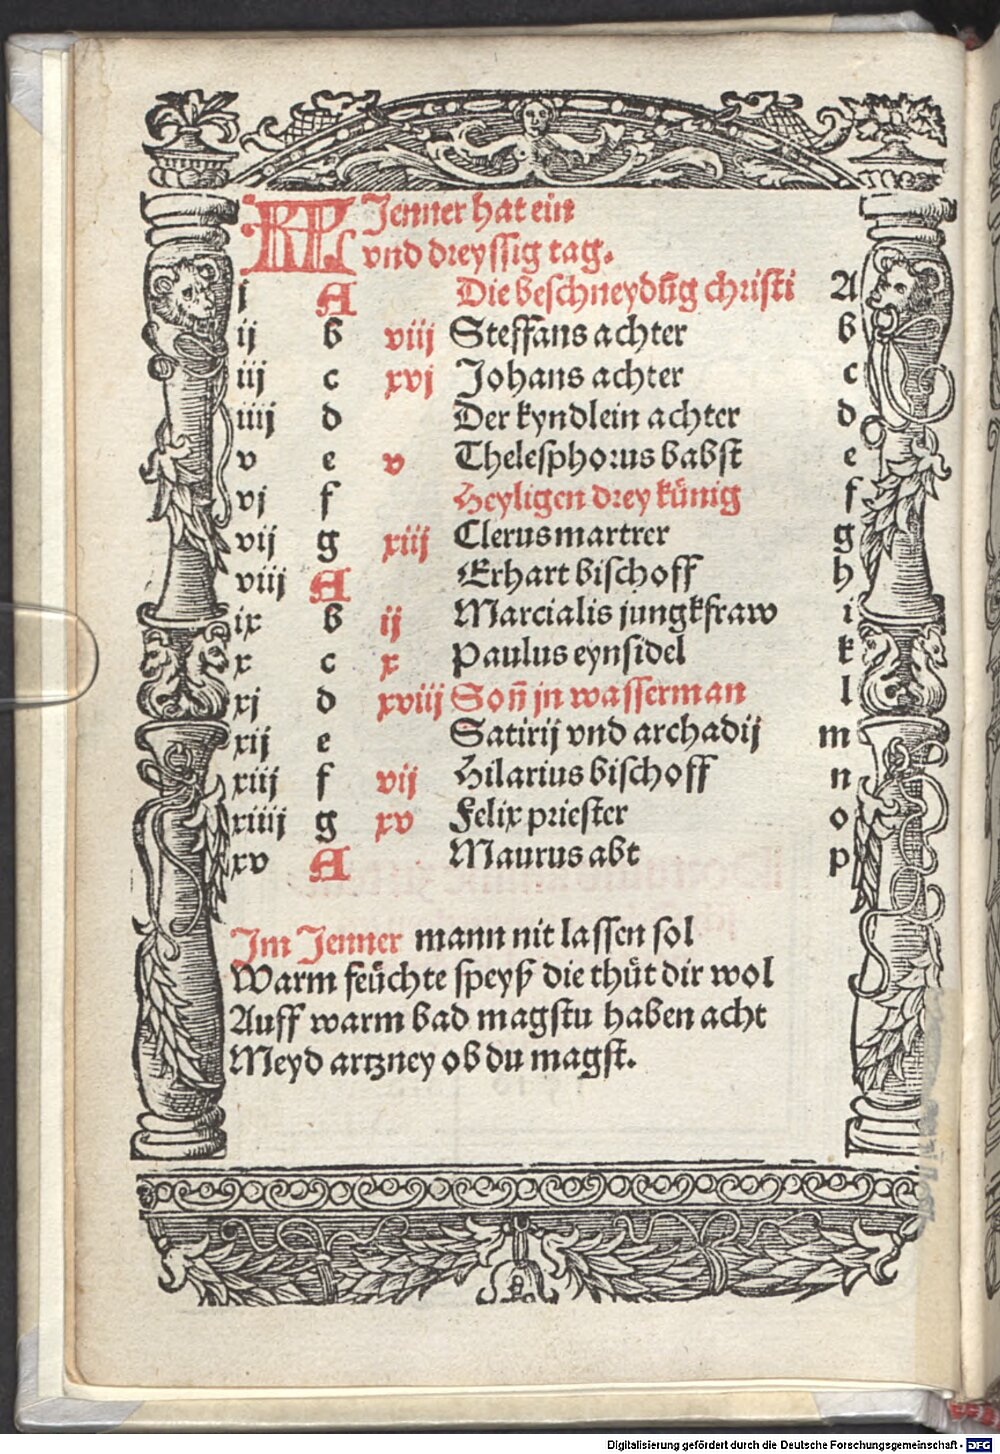 KL Jenner hat ein
vnd dreyssig tag.
j A Die beschneydūg christi A
ij b viij Steffans achter b
iij c xvj Johans achter c
iiij d Der kyndlein achter d
v e v Thelesphorus babst e
vj f Heyligen drey künig f
vij g xiij Clerus martrer g
viij A Erhart bischoff h
ix b ij Marcialis jungkfraw i
x c x Paulus eynsidel k
xj d xviij Soñ jn wasserman l
xij e Satirij vnd archadij m
xiij f vij Hilarius bischoff n
xiiij g xv Felix priester o
xv A Maurus abt p
Im Jenner mann nit lassen sol
Warm feüchte speyß die thüt dir wol
Auff warm bad magstu haben acht
Meyd artzney ob du magst.
Digitalisierung gefördert durch die Deutsche Forschungsgemeinschaft - DFG